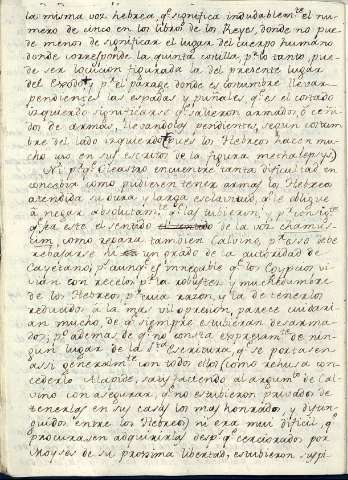 la misma voz hebrea, q.e significa indudablem.te el nu-
mero de cinco en los libros de los Reyes, donde no pue-
de menos de significar el lugar del cuerpo humano
donde corresponde la quinta costilla, p.r lo tanto, pue-
de ser locucion figurada la del presente lugar
del Exodo, y p.r el parage donde es costumbre llevar
pendiente las espadas y puñales, q.e es el costado
izquierdo significarse q.e salieron armados, ó ceñi-
dos de armas, llevandolas pendientes, segun costum-
bre del lado izquierdo pues los Hebreos hacen mu-
cho uso en sus escritos de la figura methalepsys)
Ni p.r q.e Oleastro encuentre tanta dificultad en
concebir como pudieren tener armas los Hebreos
atendida su dura y larga esclavitud, q.e le obligue
á negar absolutam.te q.e las tubieron, y p.r consig.te
q.e sea este el sentido el sentido de la voz chamus-
sim, como repara tambien Calvino, p.r eso debe
rebajarse ni un grado de la autoridad de
Cayetano; p.s aunq.e es innegable q.e los Egypcios vi-
vian con recelos p.r la robustez y muchedumbre
de los Hebreos, p.r cuia razon, y la de tenerlos
reducidos á la mas vil opresion, parece cuidari-
an mucho, de q.e siempre estubieran desarma-
dos; p.s ademas de q.e no consta expresam.te de nin-
gun lugar de la S.ta Escritura, q.e se portasen
assi generalm.te con todos ellos (como rehusa con-
cederlo Alapide, satisfaciendo al argum.to de Cal-
vino con asegurar, q.e no estubieron privados de
tenerlas en sus casas los mas honrados, y distin-
guidos entre los Hebreos) ni era muy dificil, q.e
procurasen adquirirlas desp.s q.e cerciorados por
Moyses de su proxima libertad, estubieron suspi-